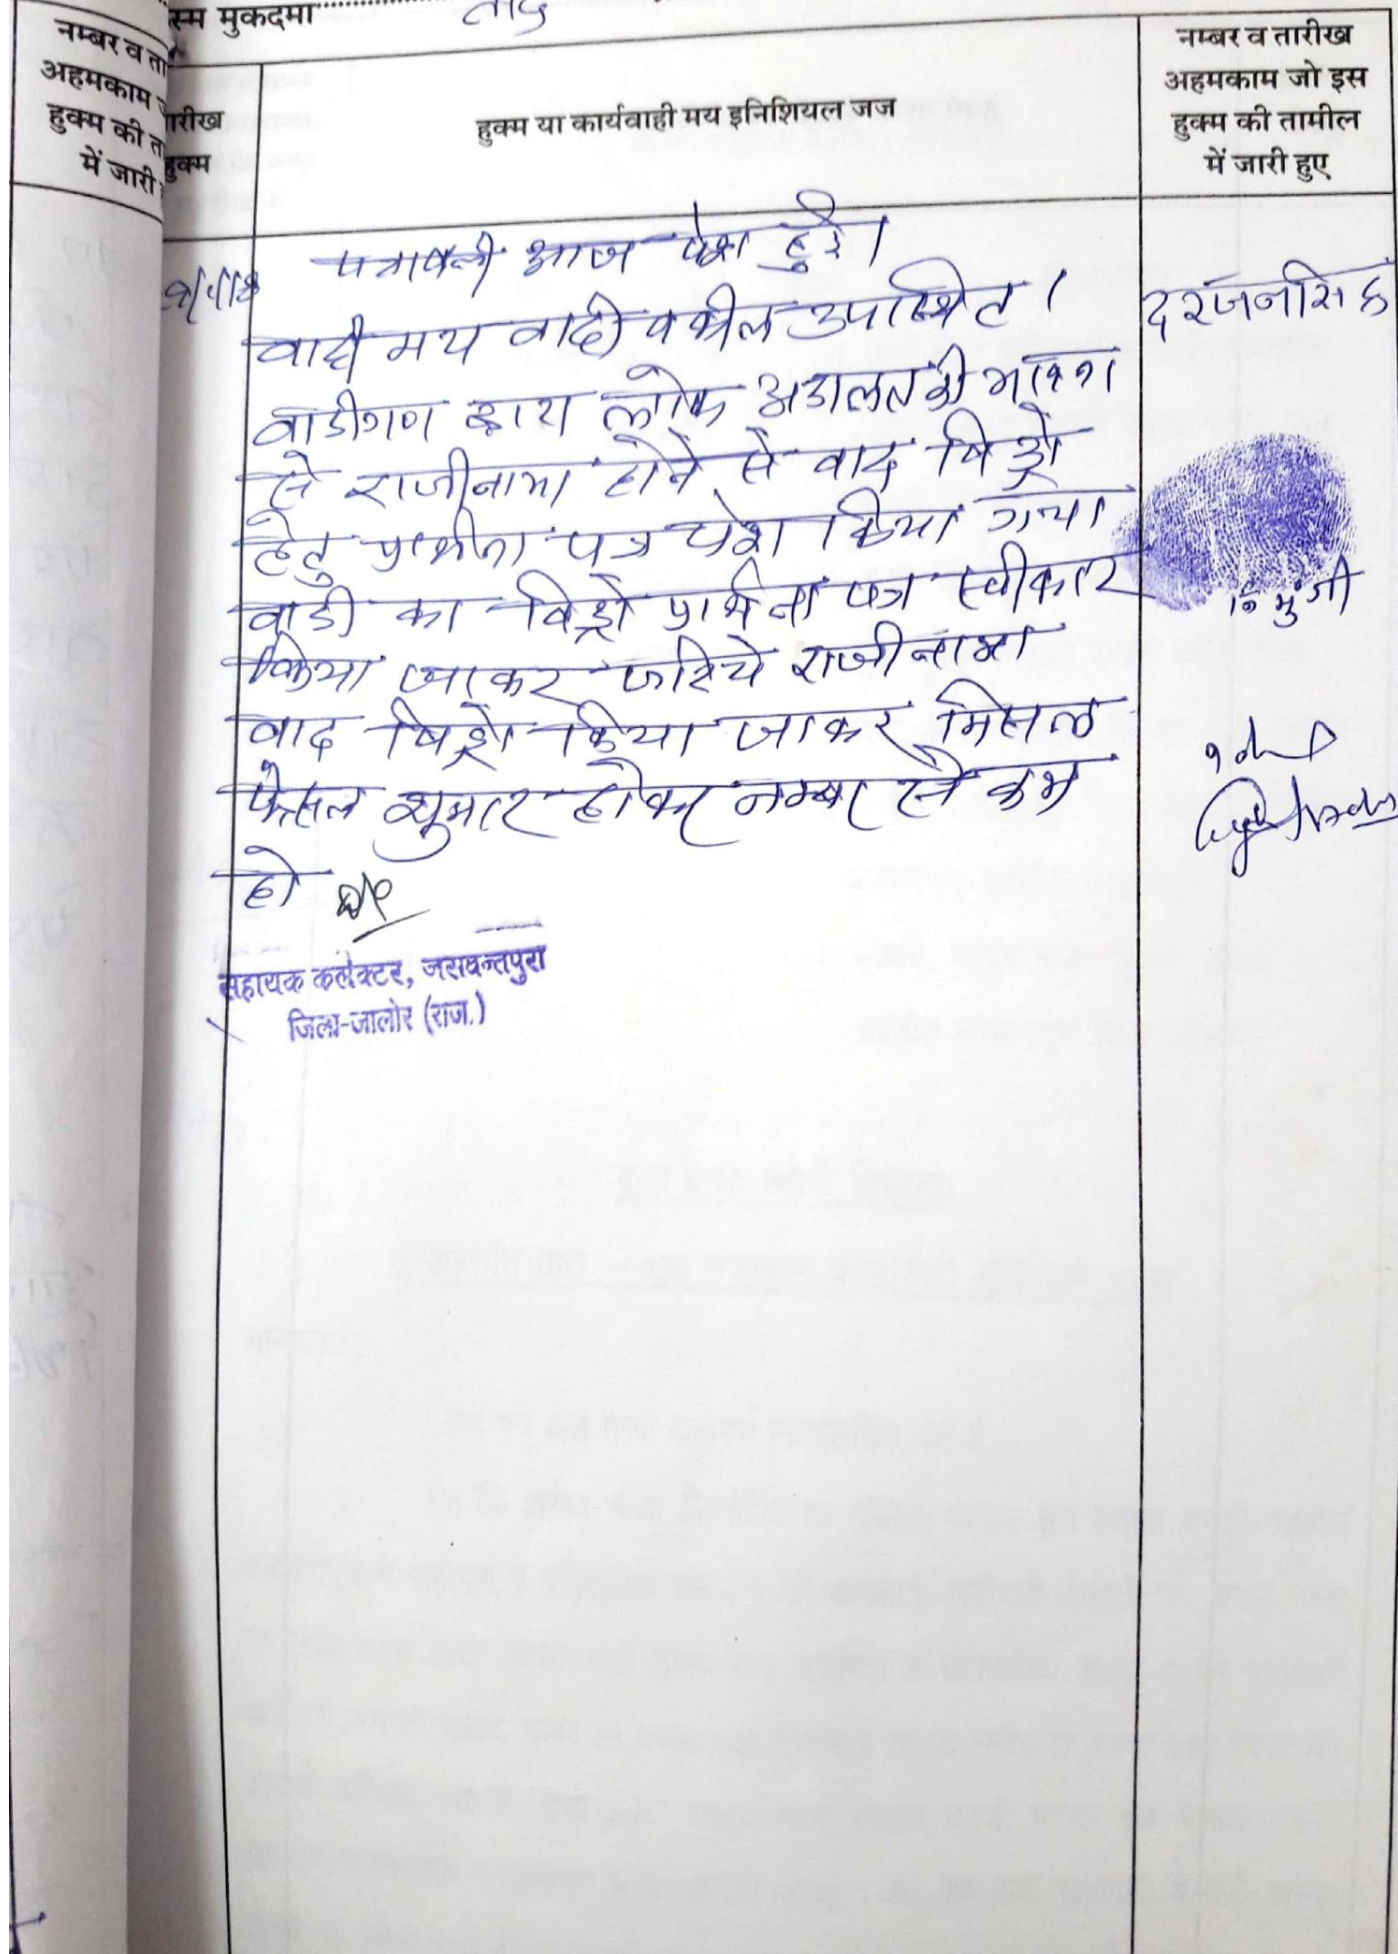 स्म मुकदमा
वाद
नम्बर व ता
अहमकाम
हुक्म की ता
में जारी
तारीख
हुक्म
हुक्म या कार्यवाही मय इनिशियल जज
नम्बर व तारीख
अहमकाम जो इस
हुक्म की तामील
में जारी हुए
पत्रावली आज पेश हुई।
वादी मय वादी वकील उपस्थित।
वादीगण द्वारा लोक अदालत की भावना
से राजीनामा होने से वाद विड्रो
हेतु प्रार्थना पत्र पेश किया गया
वादी का विड्रो प्रार्थना पत्र स्वीकार
किया जाकर जरिये राजीनामा
वाद विड्रो किया जाकर मिसल
फैसल शुमार होकर नम्बर से कम
हो
सहायक कलेक्टर, जसवन्तपुरा
जिला-जालोर (राज.)
द रजनसिह